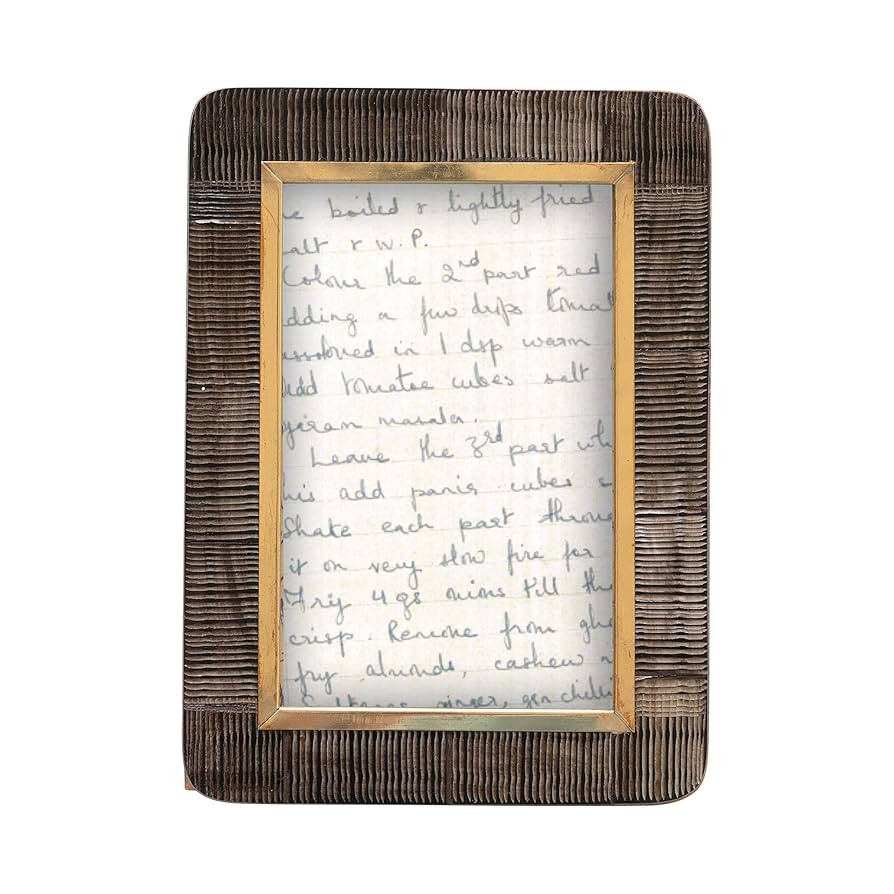 boiled & lightly fried
alt & W.P.
Colour the 2nd part red
dding a few drops tomat
ssolved in 1 dsp warm
Add tomatoe cubes salt
geram masala.
Leave the 3rd part wh
his add panir cubes
Shake each part throug
it on very slow fire for
Fry 4 gs onions till the
crisp. Remove from ghe
fry almonds, cashew n
ginger, gen chilli